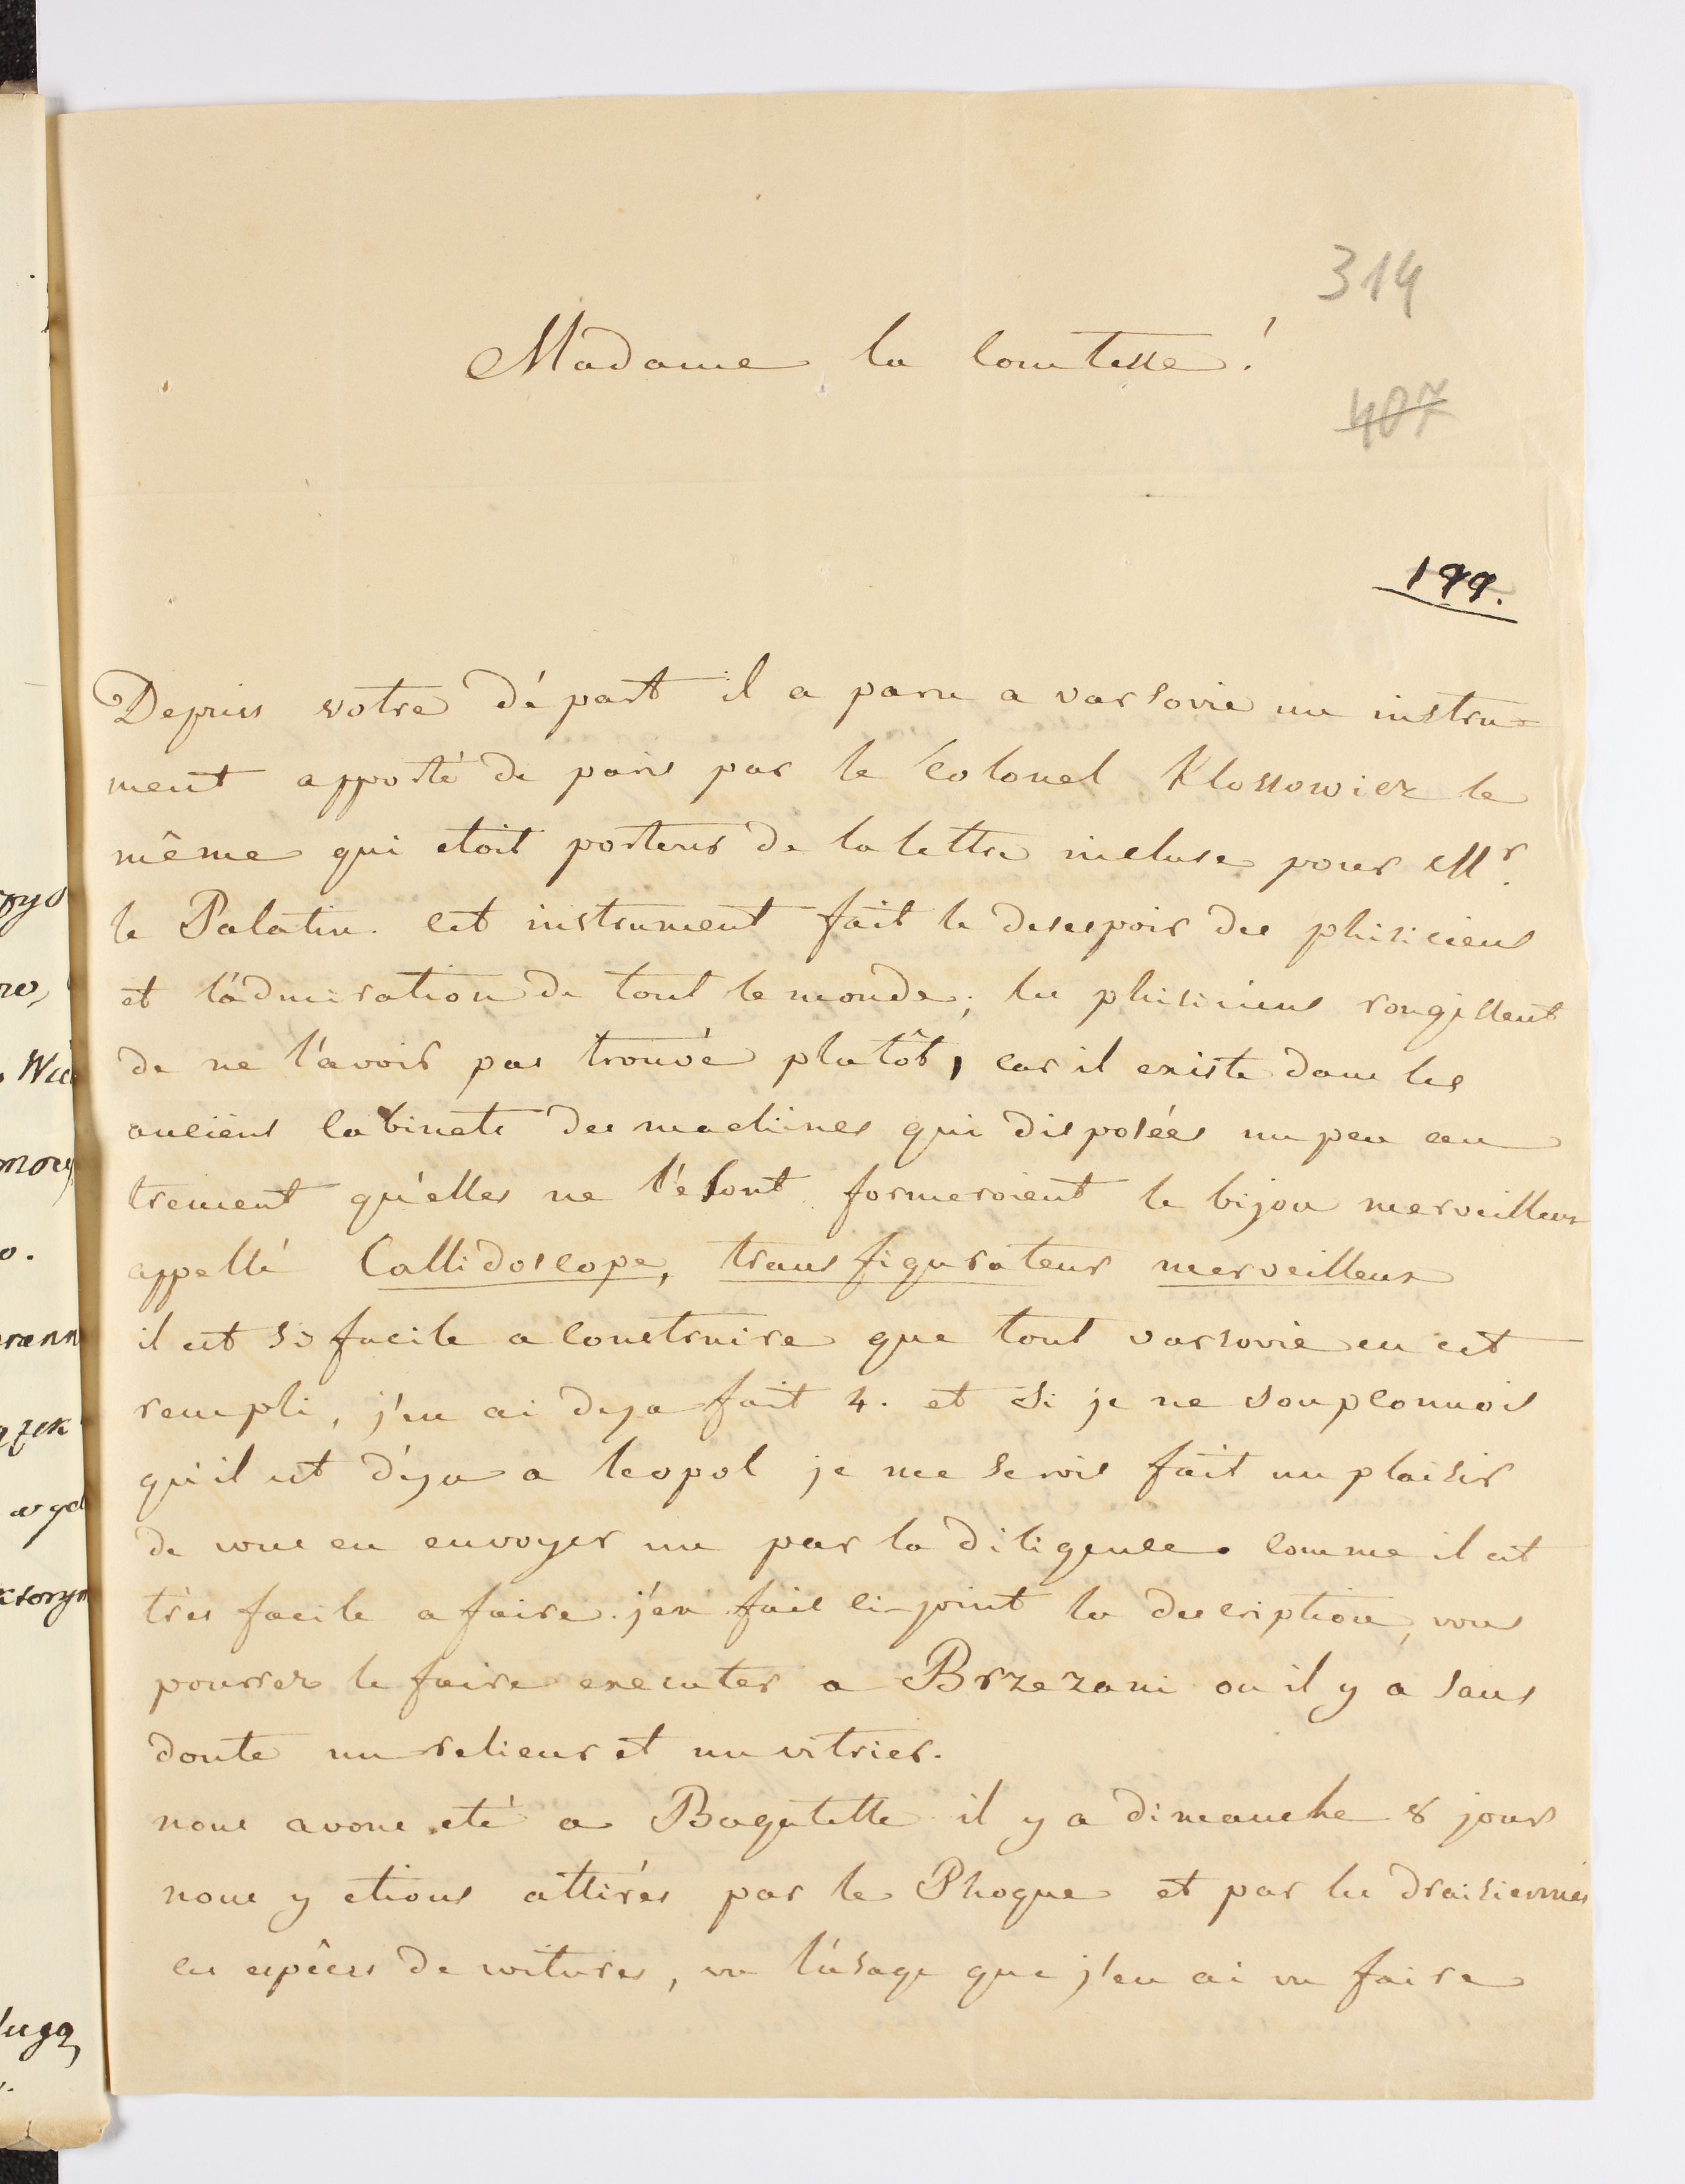 314
Madame la Comtesse!
407
199.
Depuis votre dépârt il a paru a varsovie un instru=
ment apporté de paris par le Colonel Klossowicz le
même qui etoit porteur de la lettre incluse pour Mr.
le Palatin. Cet instrument fait le desespoir des phisiciens
et l'admiration de tout le monde; les phisiciens rougissent
de ne l'avoir pas trouvé plutôt, car il existe dans les
anciens Cabinets des machines qui disposées un peu au
trement qu'elles ne le sont formeroient le bijou merveilleux
appellé Callidoscope, transfigurateur merveilleux
il est si facile a Construire que tout varsovie en est
rempli, j'en ai deja fait 4. et si je ne soupconnois
qu'il est déja a leopol je me serois fait un plaisir
de vous en envoyer un par la diligence. Comme il est
très facile a faire. j'en fais ci-joint la description, vous
pourrez le faire executer a Brzezani ou il y a sans
doute un relieur et un vitrier.
nous avons eté a Bagatelle il y a dimanche 8 jours
nous y etions attirés par le Phoque et par les draisiennes
ces espêces de voitures, vu l'usage que j'en ai vu faire
zyo
no,
Wie
mowy
o.
rann
ązek
ługą